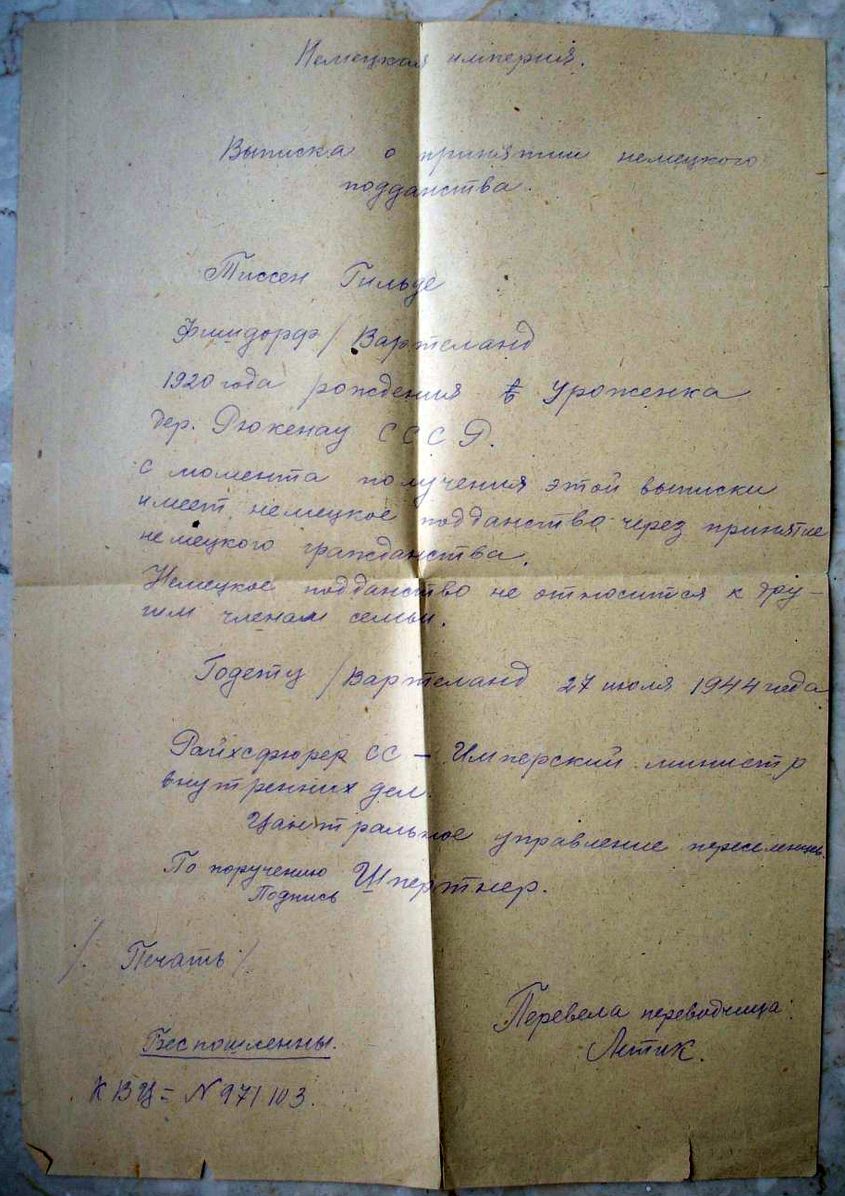 Немецкая империя.
Выписка о принятии немецкого
подданства.
Тиссен Гильде
/ Вартеланд
1920 года рождения уроженка
дер. Рюкенау СССР.
с момента получения этой выписки
имеет немецкое подданство через принятие
немецкого гражданства.
Немецкое подданство не относится к дру-
гим членам семьи.
Годетц / Вартеланд 27 июля 1944 года
Райхсфюрер СС – Имперский министр
внутренних дел.
Цантральное управление
По поручению Шпертнер.
Подпись
/. Печать /.
Перевела переводчица:
Беспошленны.
КВЦ = N 971103.